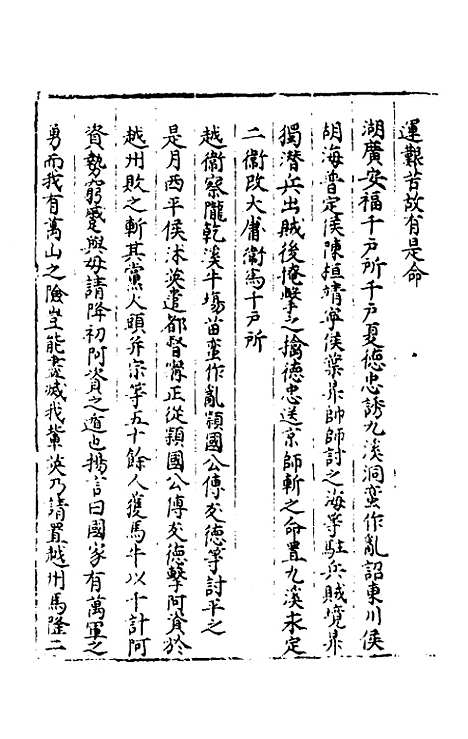 運艱苦故有是命
湖廣安福千戸所千戸夏徳忠誘九溪洞蛮作亂詔東川侯
胡海普定侯陳桓靖寧侯葉昇帥師討之海等駐兵賊境昇
獨潜兵出賊後俺擊之擒徳忠送京師斬之命置九溪永定
二衞改大庸衞為千戸所
越衞察隴乾溪牛塲苗蛮作亂頴國公傅友徳等討平之
是月西平侯沐英遣都督甯正從頴國公傅友徳擊阿資於
越州敗之斬其黨人頭弁宗等五十餘人獲馬牛以千計阿
資勢窮蹙與母請降初阿資之遁也揚言曰國家有萬軍之
勇而我有萬山之險豈能盡滅我輩英乃請置越州馬隆二